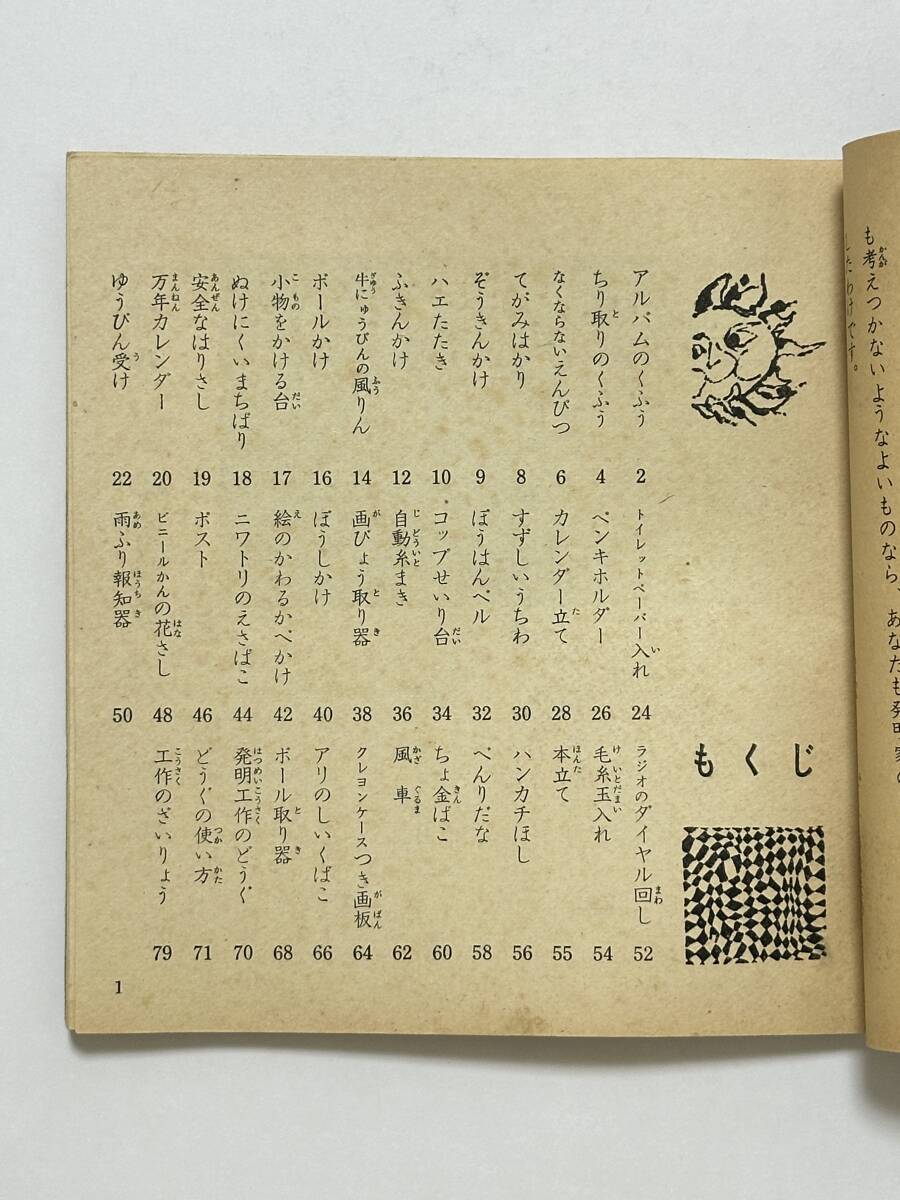 も考えつかないようなよいものなら、あなたも発明家の
したわけです。
もくじ
アルバムのくふう 2
ちり取りのくふう 4
なくならないえんぴつ 6
てがみはかり 8
ぞうきんかけ 9
ハエたたき 10
ふきんかけ 12
牛にゅうびんの風りん 14
ボールかけ 16
小物をかける台 17
ぬけにくいまちばり 18
安全なはりさし 19
万年カレンダー 20
ゆうびん受け 22
トイレットペーパー入れ 24
ペンキホルダー 26
カレンダー立て 28
すずしいうちわ 30
ぼうはんベル 32
コップせいり台 34
自動糸まき 36
画びょう取り器 38
ぼうしかけ 40
絵のかわるかべかけ 42
ニワトリのえさばこ 44
ポスト 46
ビニールかんの花さし 48
雨ふり報知器 50
ラジオのダイヤル回し 52
毛糸玉入れ 54
本立て 55
ハンカチほし 56
べんりだな 58
ちょ金ばこ 60
風車 62
クレヨンケースつき画板 64
アリのしいくばこ 66
ボール取り器 68
発明工作のどうぐ 70
どうぐの使い方 71
工作のざいりょう 79
1